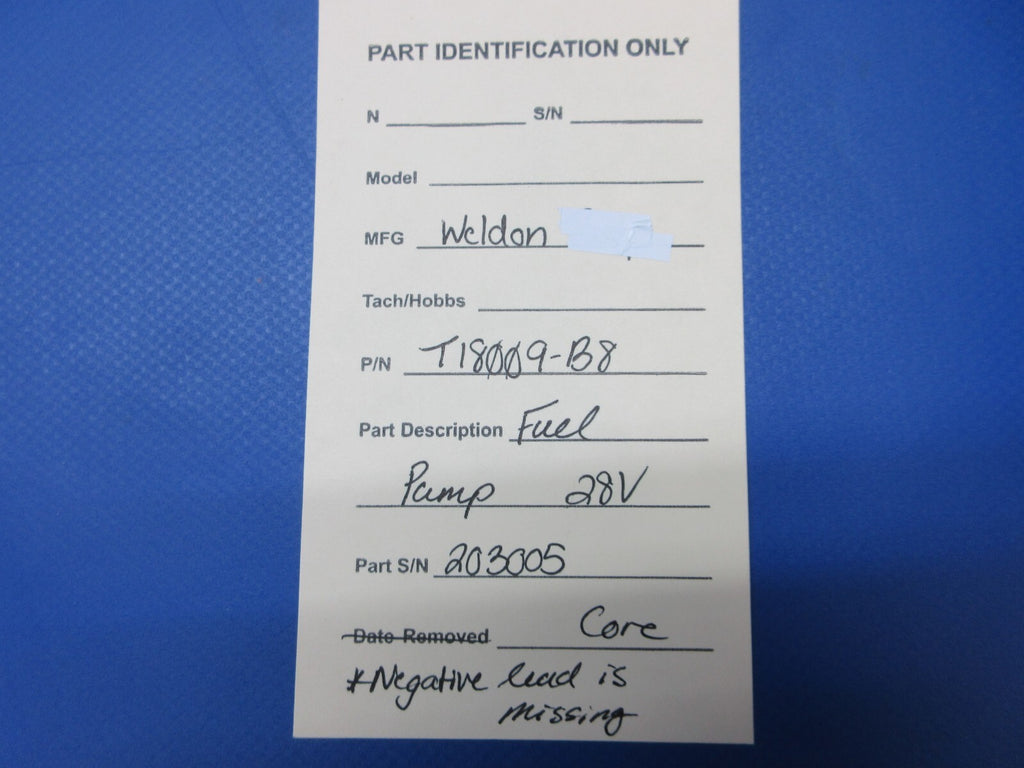 PART IDENTIFICATION ONLY
N S/N
Model
MFG Weldon
Tach/Hobbs
P/N T18009-B8
Part Description Fuel
Pump 28V
Part S/N 203005
Date Removed Core
*Negative lead is
missing